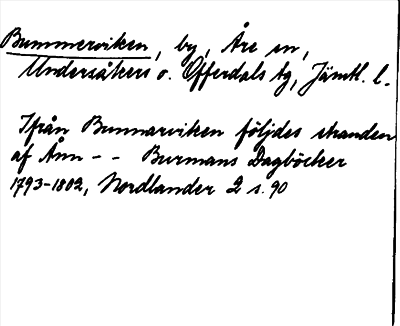 Bummerviken, by, Åre sn,
Undersåkers o. Offerdals tg, Jämtl. l.
Ifrån Bunnarviken följdes stranden
af Ånn - - Burmans Dagböcker
1793-1802, Nordlander 2 s. 90